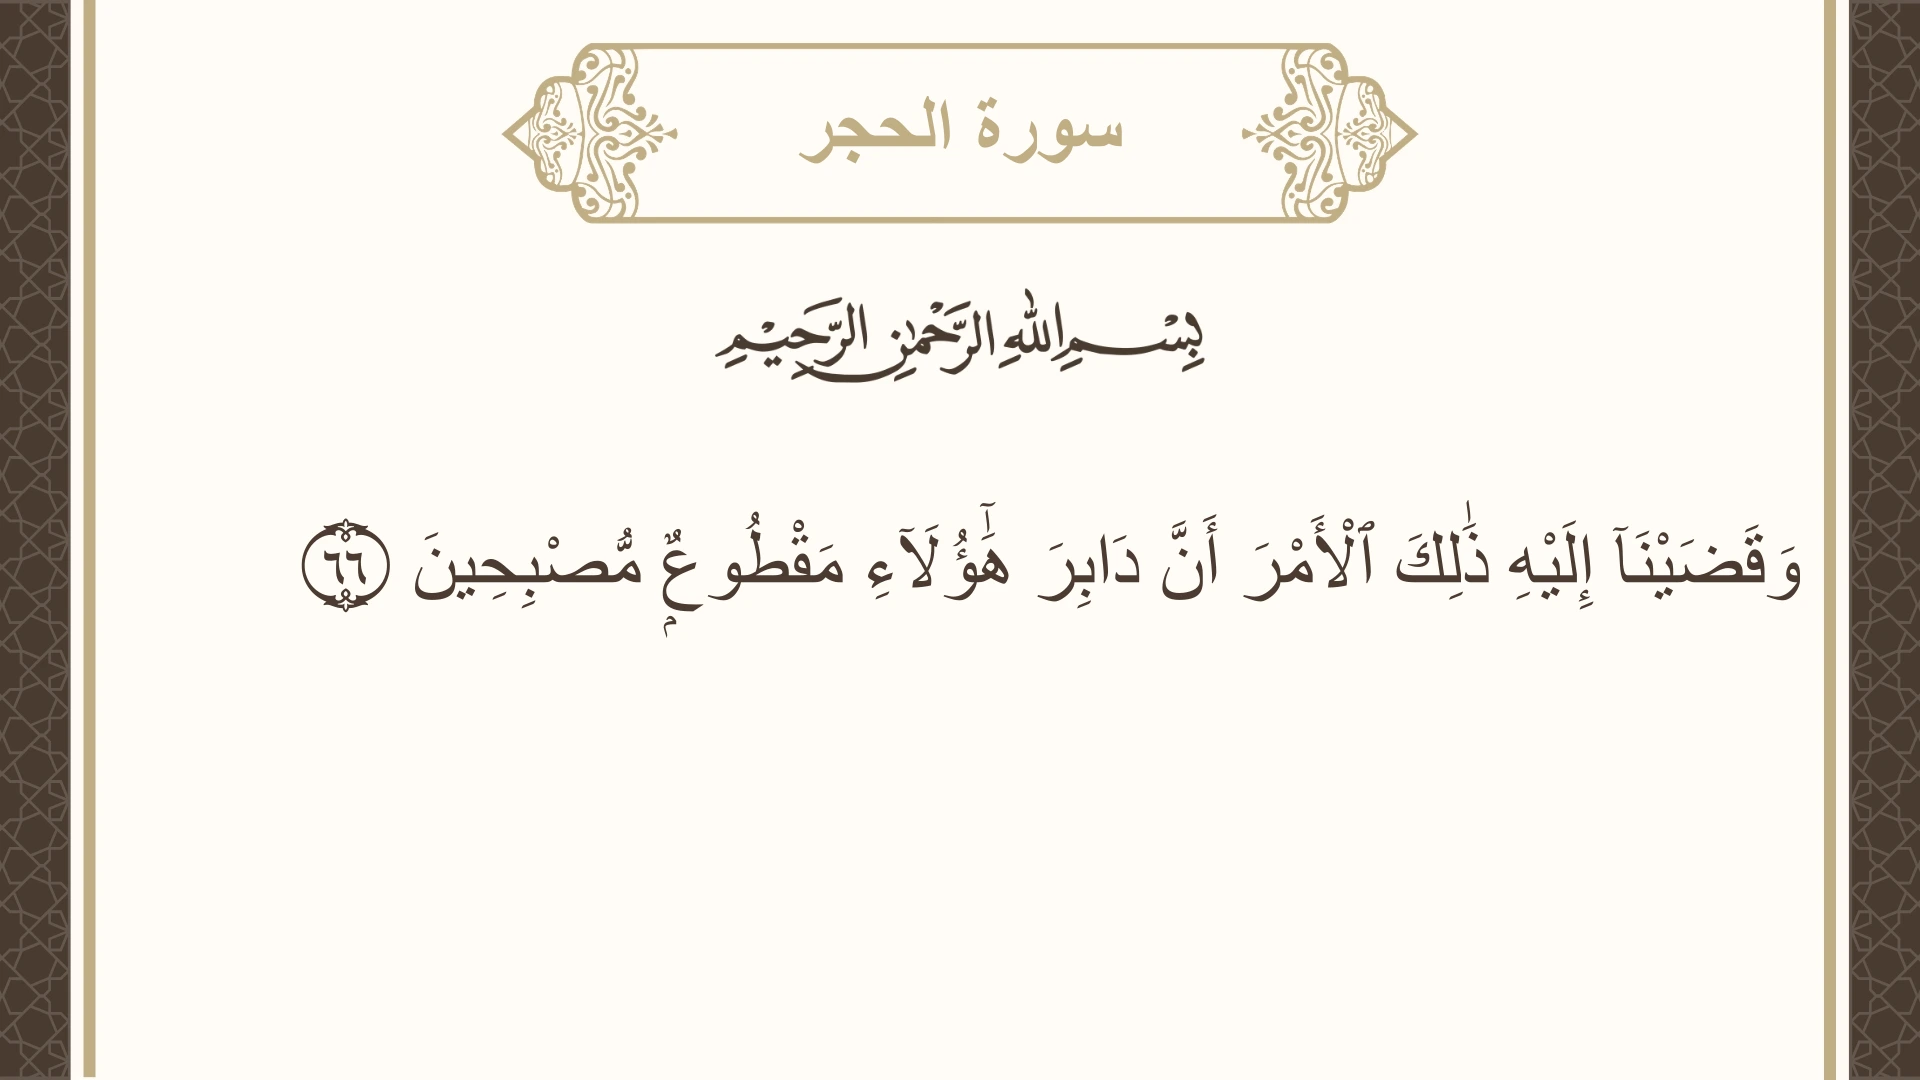 سورة الحجر
بِسْمِ اللهِ الرَّحْمٰنِ الرَّحِيْمِ
وَقَضَيْنَآ إِلَيْهِ ذَٰلِكَ ٱلْأَمْرَ أَنَّ دَابِرَ هَٰٓؤُلَآءِ مَقْطُوعٌۭ مُّصْبِحِينَ ٦٦